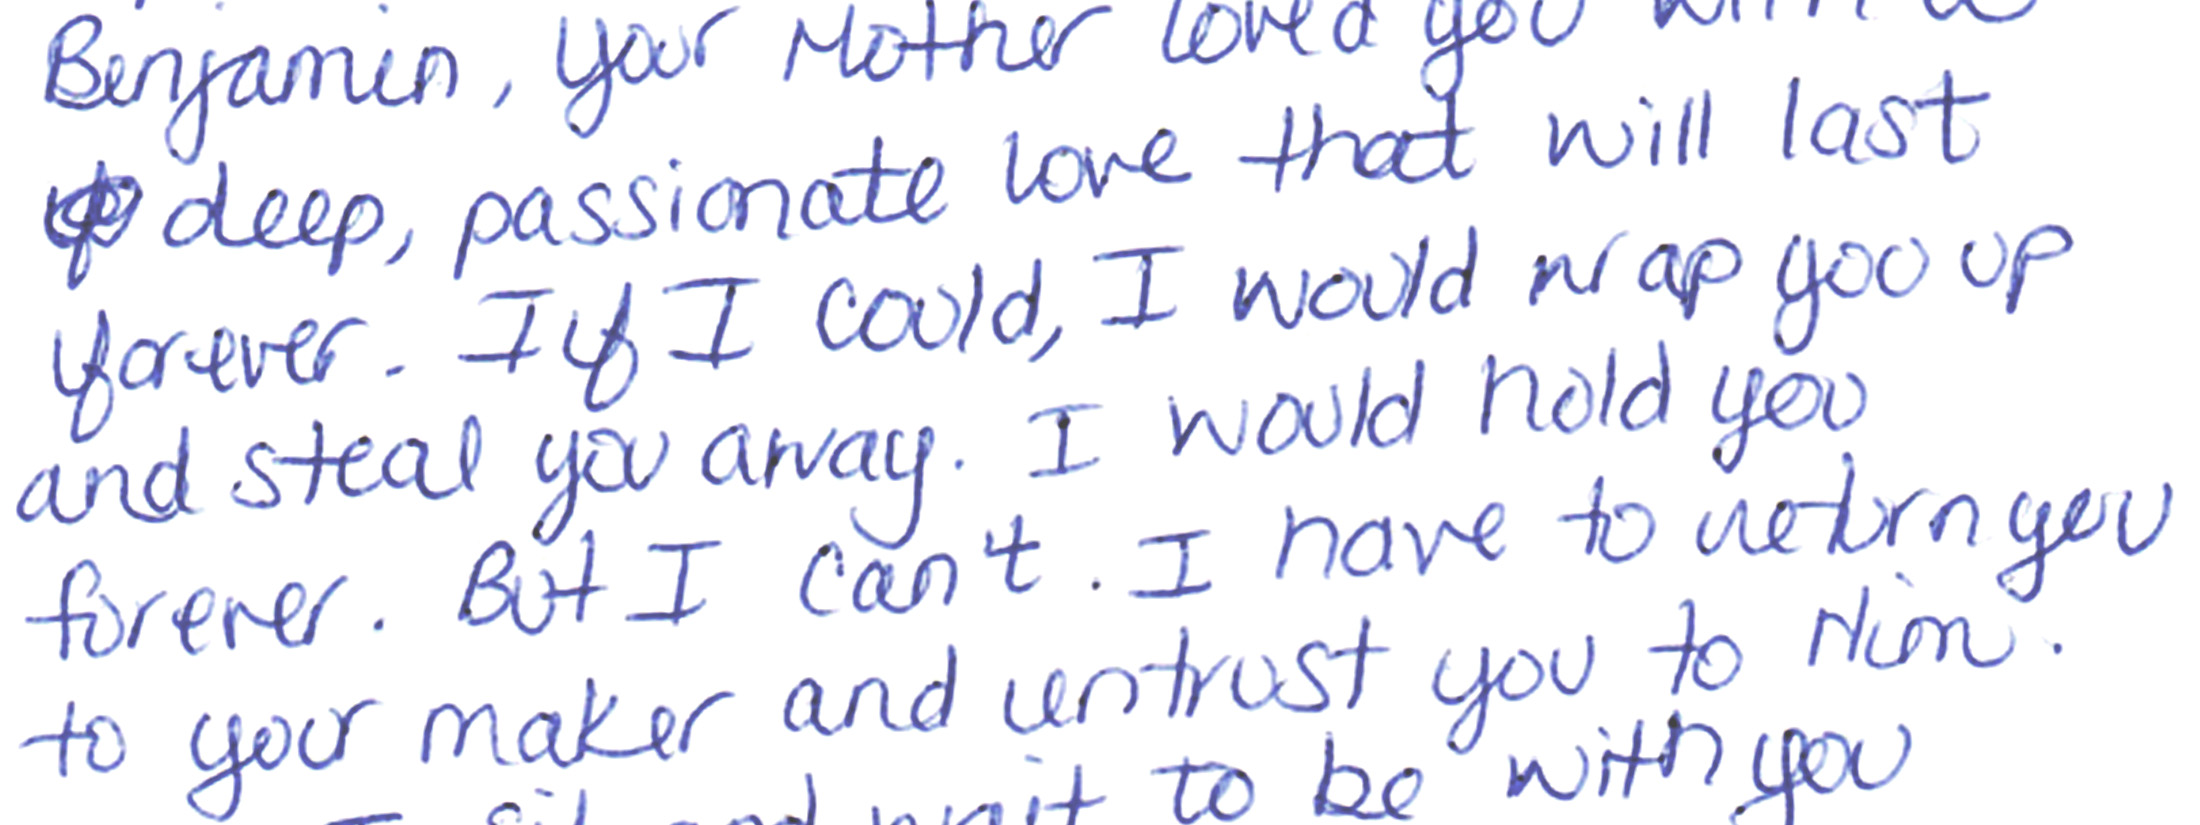 Benjamin, your Mother loved you with a
deep, passionate love that will last
forever. If I could, I would wrap you up
and steal you away. I would hold you
forever. But I can't. I have to return you
to your maker and entrust you to Him.
I sit and wait to be with you